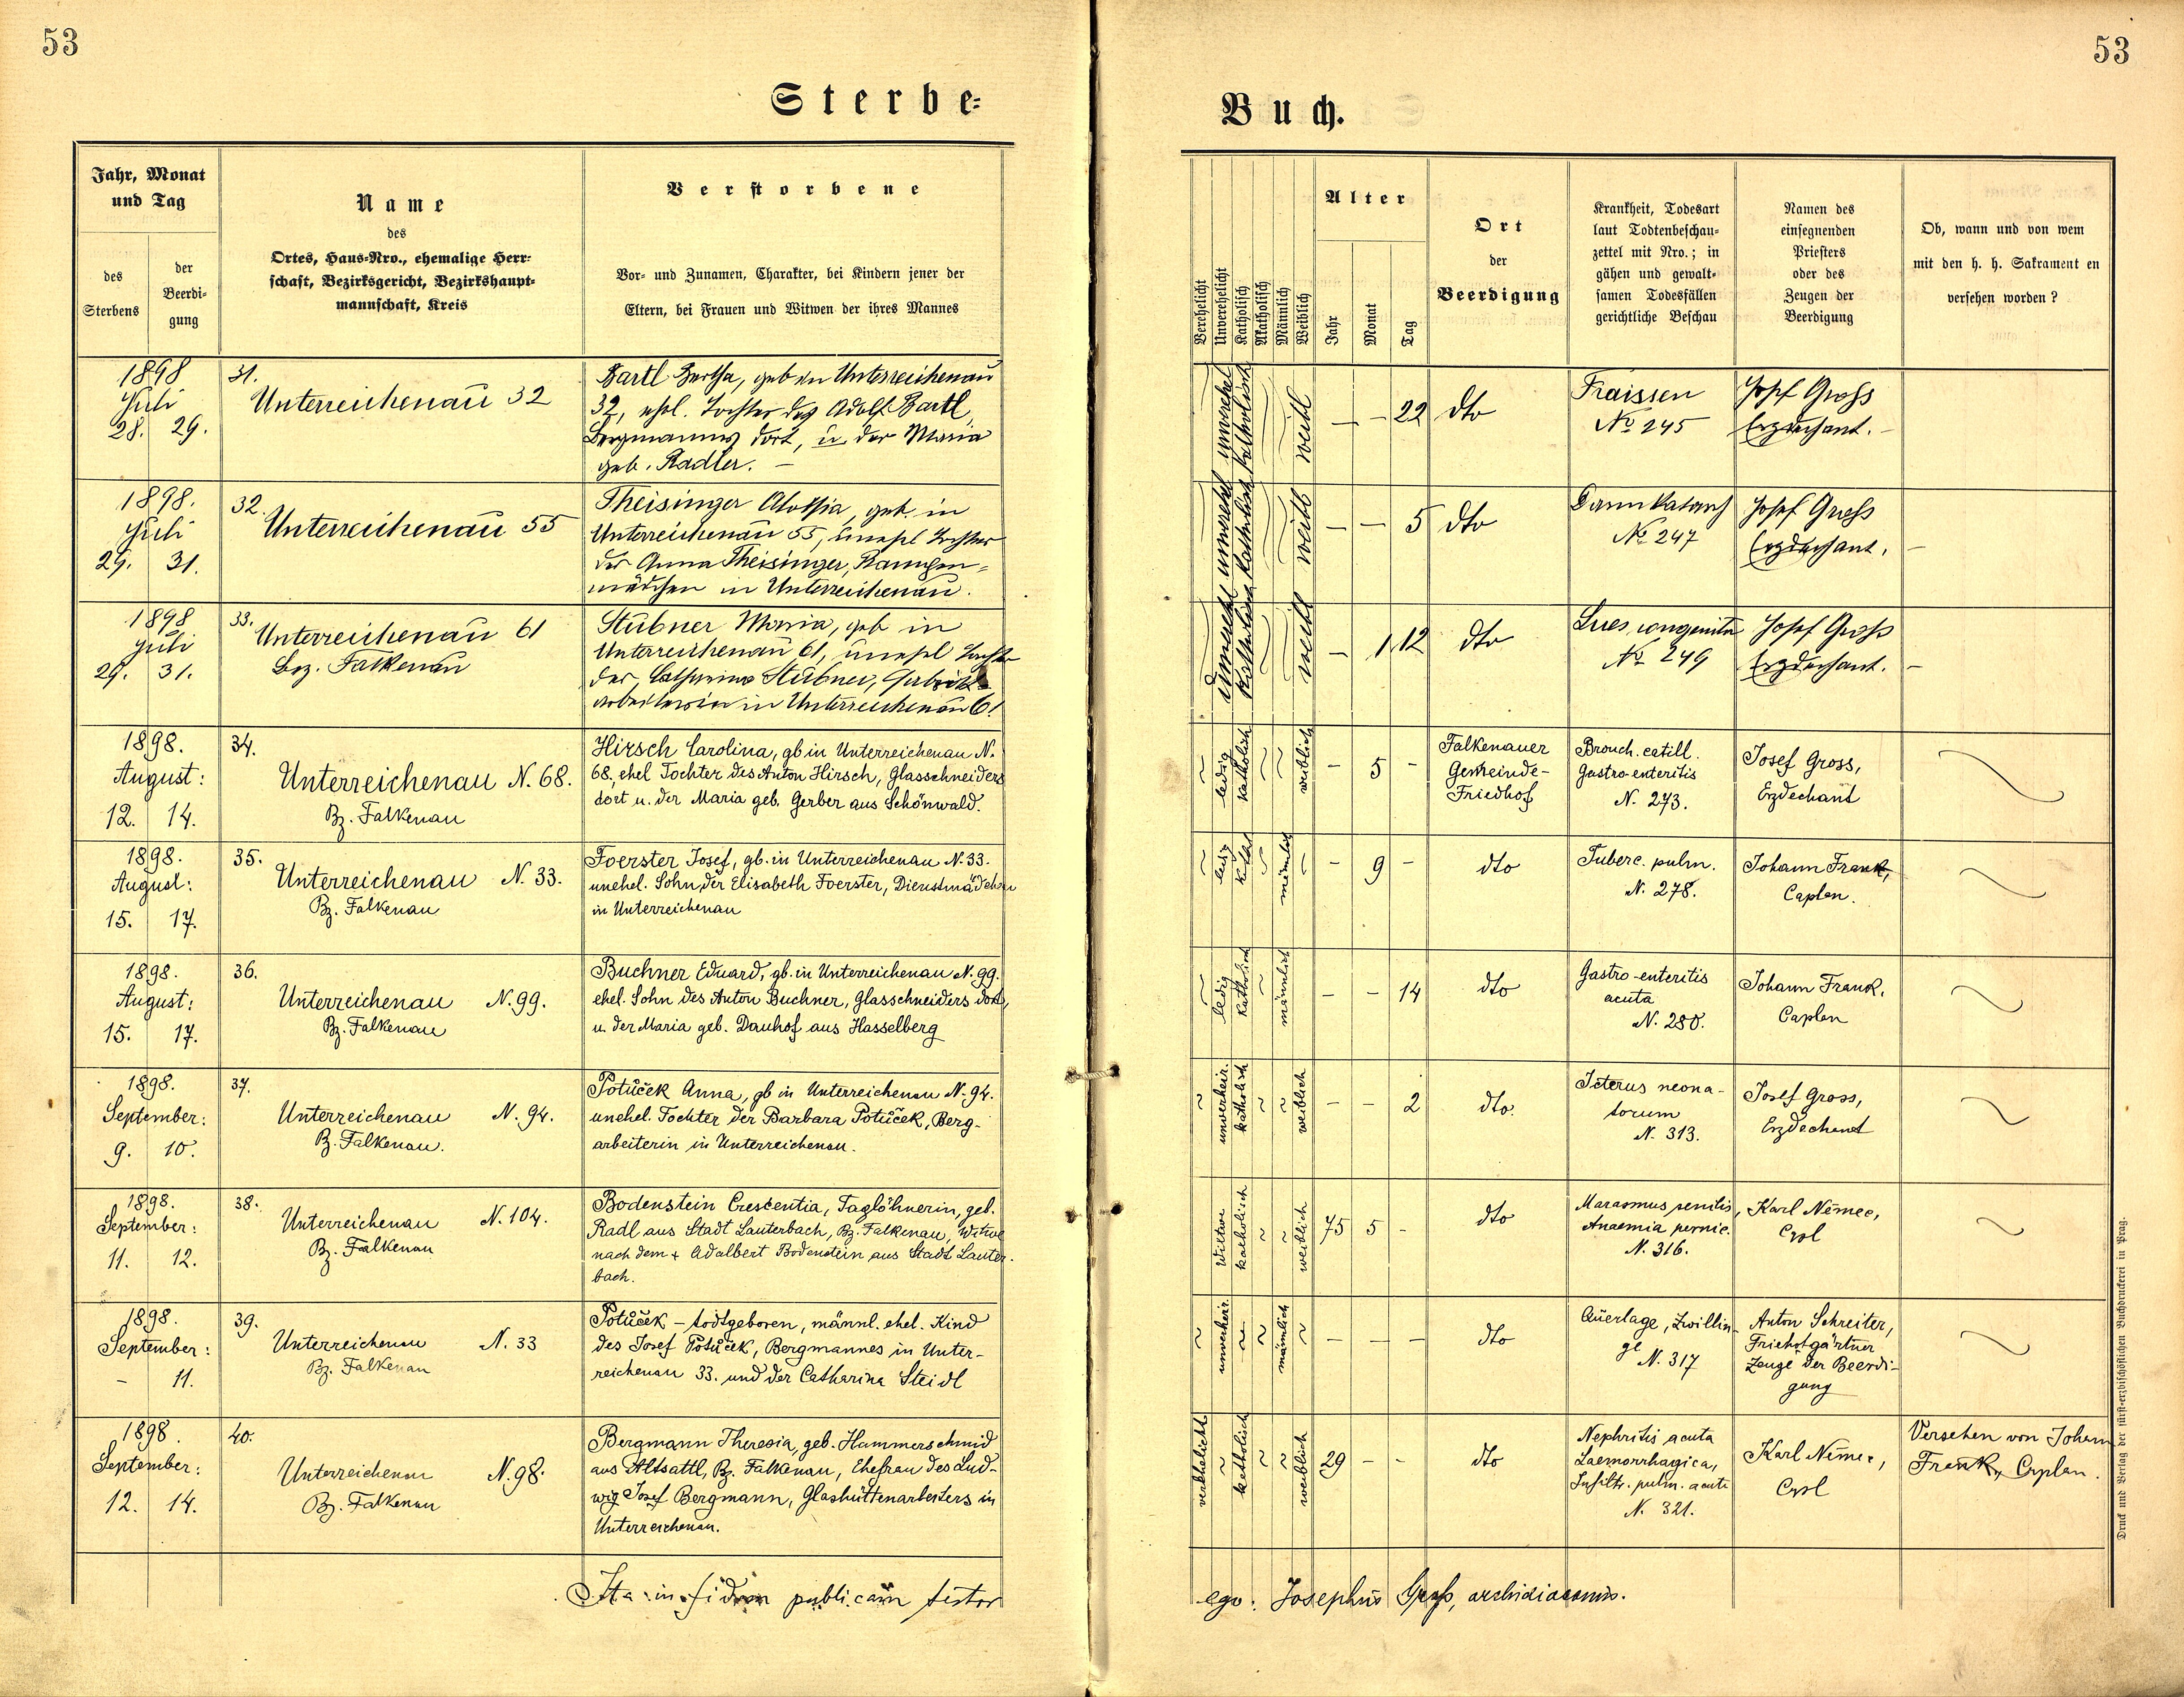 53
53
Sterbe-
Buch.
Jahr, Monat
und Tag
des
Sterbens
der
Beerdi-
gung
Name
des
Ortes, Haus-Nro., ehemalige Herr-
schaft, Bezirksgericht, Bezirkshaupt-
mannschaft, Kreis
Verstorbene
Vor- und Zunamen, Charakter, bei Kindern jener der
Eltern, bei Frauen und Witwen der ihres Mannes
Verehelicht
Unverehelicht
Katholisch
Akatholisch
Männlich
Weiblich
Alter
Jahr
Monat
Tag
Ort
der
Beerdigung
Krankheit, Todesart
laut Todtenbeschau-
zettel mit Nro.; in
gähen und gewalt-
samen Todesfällen
gerichtliche Beschau
Namen des
einsegnenden
Priesters
oder des
Zeugen der
Beerdigung
Ob, wann und von wem
mit den h. h. Sakrament en
versehen worden?
1898
Juli
28. 29.
31.
Unterreichenau 32
Bartl Bertha, geb in Unterreichenau
32, ehel. Tochter des Adolf Bartl,
Bergmannes dort, u der Maria
geb. Radler. –
unverehel
katholisch
weibl
– – 22
dto
Fraissen
No 245
Josef Gross
Erzdechant. –
1898.
Juli
29. 31.
32.
Unterreichenau 55
Theisinger Aloisia, geb. in
Unterreichenau 55, unehel Tochter
der Anna Theisinger,
mädchen in Unterreichenau.
unverehel
katholisch
weibl
– – 5
dto
Darmkatarrh
No 247
Josef Gross
Erzdechant. –
1898
Juli
29. 31.
33.
Unterreichenau 61
Bez. Falkenau
Stübner Maria, geb in
Unterreichenau 61, unehel Tochter
der Catharina Stübner, Fabriks-
arbeiterin in Unterreichenau 61.
unverehel
katholisch
weibl
– 1 12
dto
Lues congenita
No 249
Josef Gross
Erzdechant. –
1898.
August:
12. 14.
34.
Unterreichenau N. 68.
Bz. Falkenau
Hirsch Carolina, gb in Unterreichenau N.
68, ehel Tochter des Anton Hirsch, Glasschneiders
dort u. der Maria geb. Gerber aus Schönwald.
ledig
katholich
weiblich
– 5 –
Falkenauer
Gemeinde-
Friedhof
Bronch. catill.
Gastro-enteritis
N. 273.
Josef Gross,
Erzdechant
1898.
August:
15. 17.
35.
Unterreichenau N. 33.
Bz. Falkenau
Foerster Josef, gb. in Unterreichenau N. 33.
unehel. Sohn der Elisabeth Foerster, Dienstmädchen
in Unterreichenau
ledig
kathol
männlich
– 9 –
dto
Tuberc. pulm.
N. 278.
Johann Frank,
Caplan.
1898.
August:
15. 17.
36.
Unterreichenau N. 99.
Bz. Falkenau
Buchner Eduard, gb. in Unterreichenau N. 99.
ehel. Sohn des Anton Buchner, Glasschneiders dort,
u. der Maria geb. Dauhof aus Hasselberg
ledig
katholich
männlich
– – 14
dto
Gastro-enteritis
acuta
N. 280.
Johann Frank,
Caplan
1898.
September:
9. 10.
37.
Unterreichenau N. 94.
B. Falkenau.
Potůček Anna, gb in Unterreichenau N. 94.
unehel. Tochter der Barbara Potůček, Berg-
arbeiterin in Unterreichenau.
unverheir.
katholisch
weiblich
– – 2
dto.
Icterus neona-
torum
N. 313.
Josef Gross,
Erzdechant
1898.
September:
11. 12.
38.
Unterreichenau N. 104.
Bz. Falkenau
Bodenstein Crescentia, Taglöhnerin, geb.
Radl aus Stadt Lauterbach, Bz. Falkenau, Witwe
nach dem + Adalbert Bodenstein aus Stadt Lauter-
bach.
Witwe
katholisch
weiblich
75 5 –
dto
Marasmus senilis,
Anaemia pernic.
N. 316.
Karl Němec,
Cpl
1898.
September:
– 11.
39.
Unterreichenau N. 33
Bz. Falkenau
Potůček – todtgeboren, männl. ehel. Kind
des Josef Potůček, Bergmannes in Unter-
reichenau 33. und der Catharina Steidl
unverheir.
männlich
– – –
dto
Querlage, Zwillin-
ge
N. 317
Anton Schreiter,
Friehofgärtner
Zeuge der Beerdi-
gung
1898.
September:
12. 14.
40.
Unterreichenau N. 98.
Bz. Falkenau
Bergmann Theresia, geb. Hammerschmid
aus Altsattl, Bz. Falkenau, Ehefrau des Lud-
wig Josef Bergmann, Glashüttenarbeiters in
Unterreichenau.
verehelicht
katholisch
weiblich
29 – –
dto
Nephritis acuta
Laemorrhagica,
Infiltr. pulm. acuta
N. 321.
Karl Němec,
Cpl
Versehen von Johann
Frank, Caplan.
Ita in fidem publicam testor
ego: Josephus Gross, archidiaconus.
Druck und Verlag der fürst-erzbischöflichen Buchdruckerei in Prag.